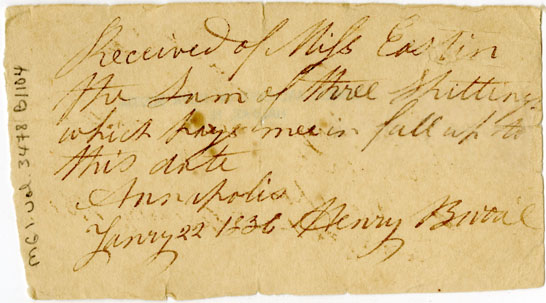 Received of Miss Eastin
the Sum of three Shillings
which pays mee in full up to
this date
Annapolis
Janry 22 1836 Henry